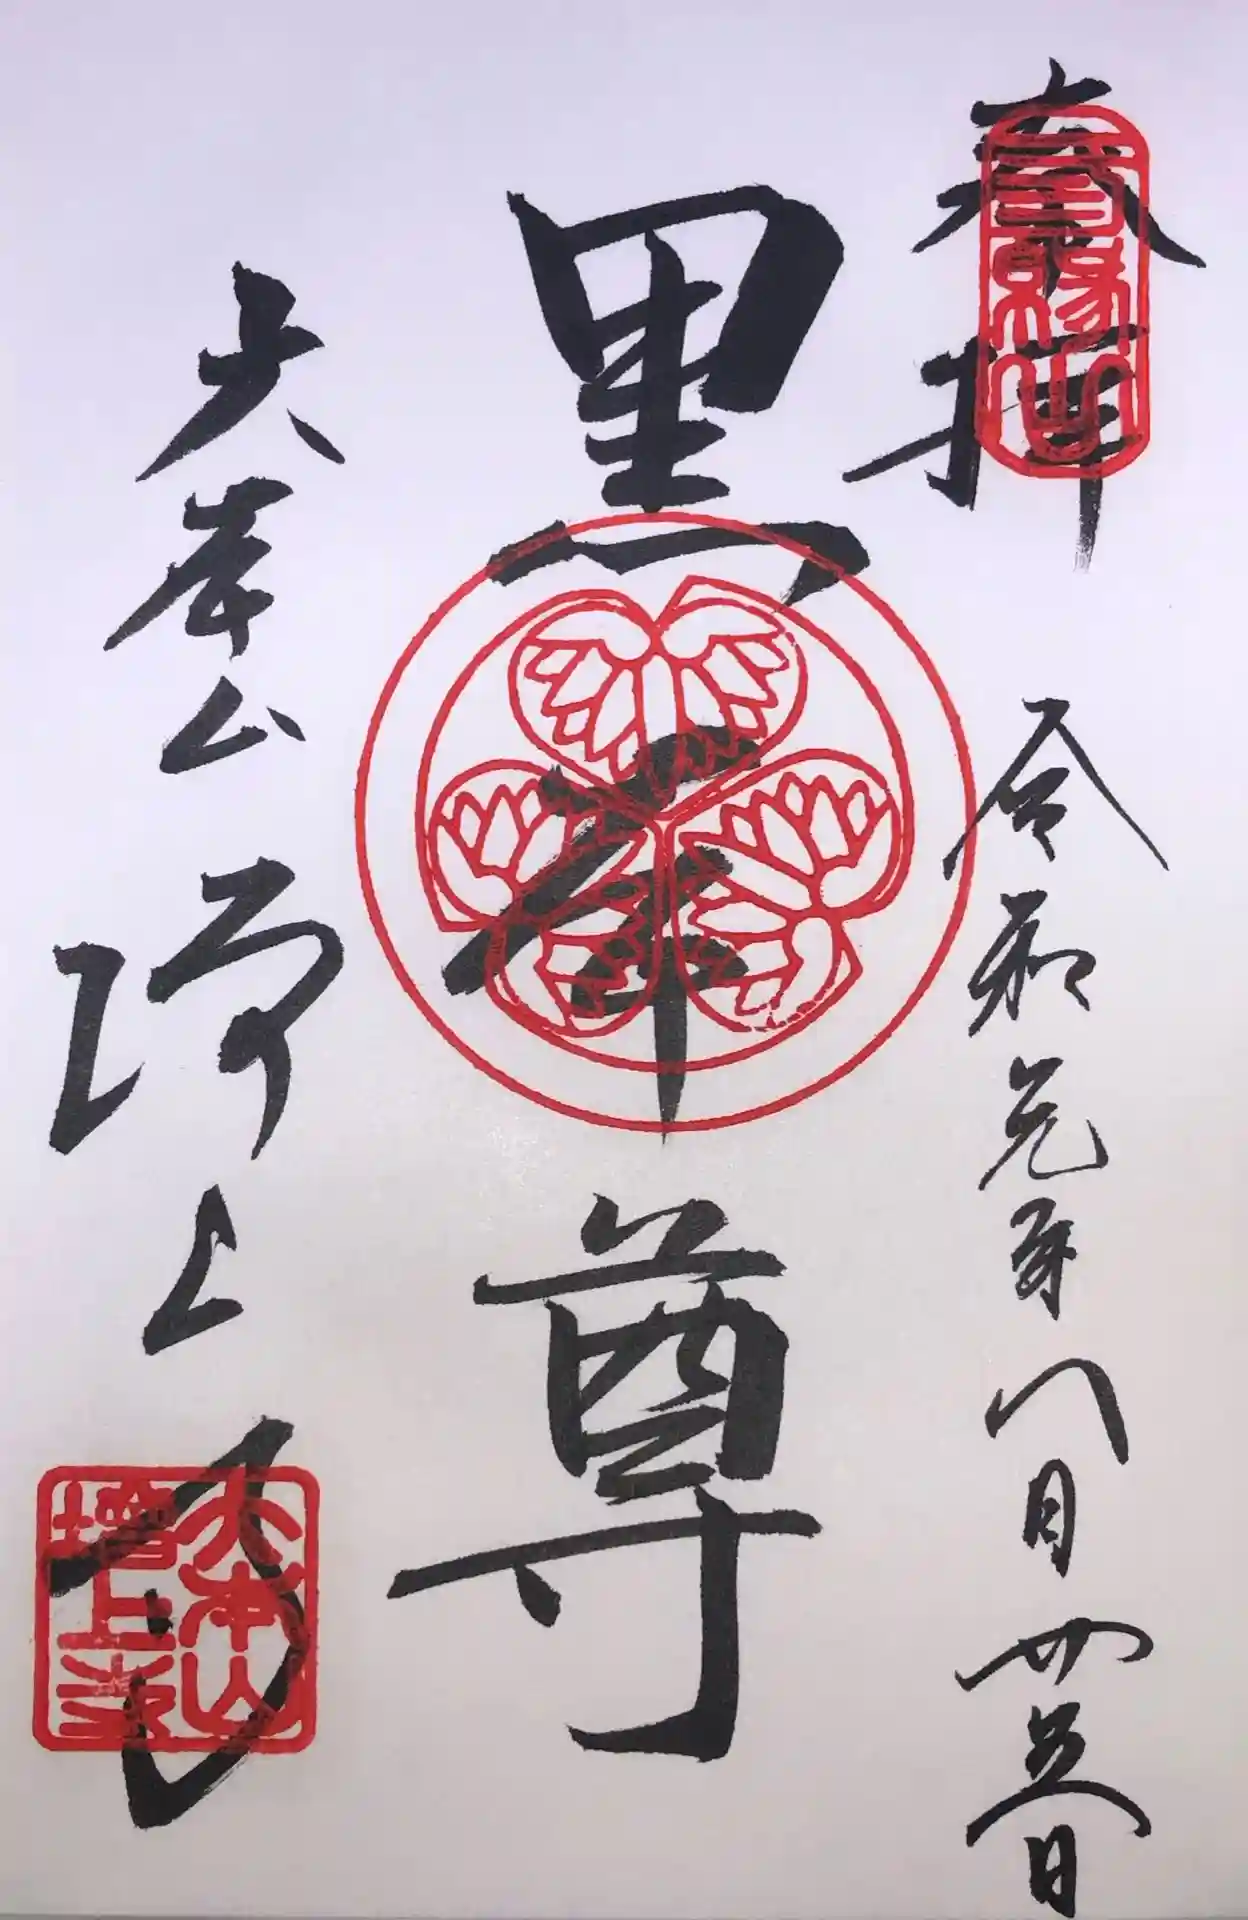 奉拝
令和元年八月廿五日
三縁山
黒本尊
大本山増上寺
大本山
増上寺